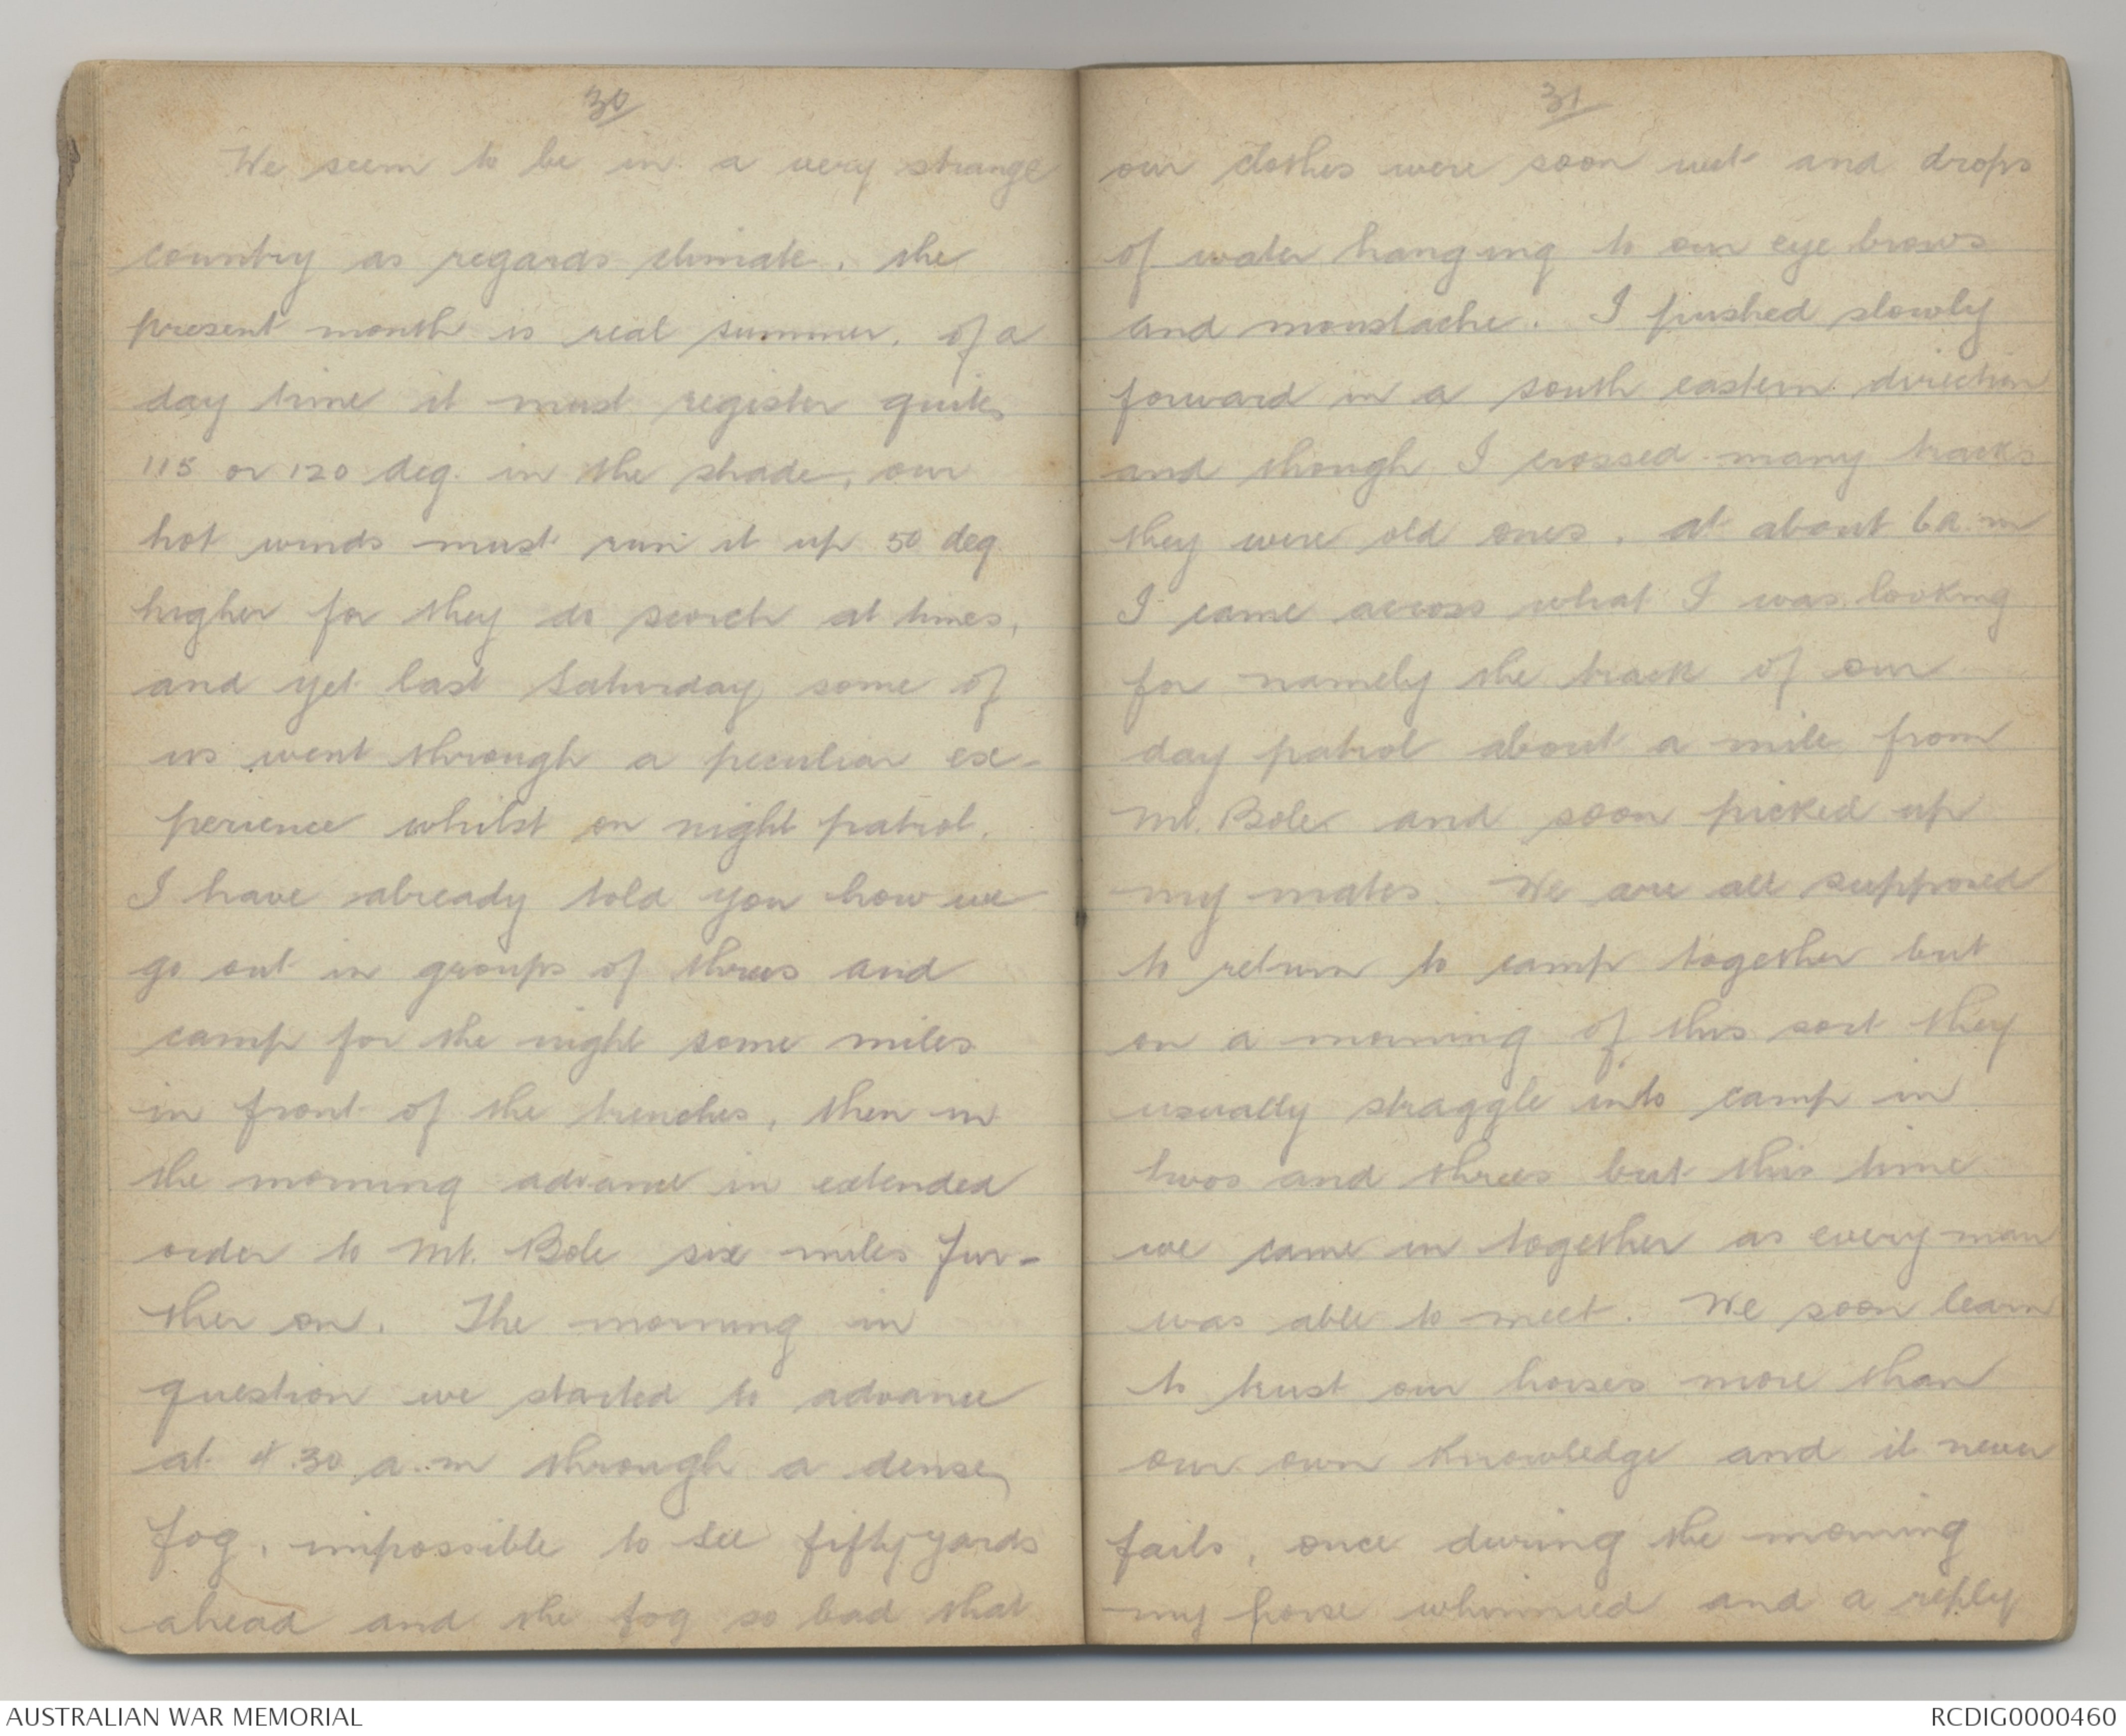 30
We seem to be in a very strange
country as regards climate, the
present month is real summer, of a
day time it must register quite
115 or 120 deg. in the shade, our
hot winds must run it up 50 deg
higher for they do scorch at times,
and yet last Saturday some of
us went through a peculiar ex-
perience whilst on night patrol.
I have already told you how we
go out in groups of threes and
camp for the night some miles
in front of the trenches, then in
the morning advance in extended
order to Mt. Bole six miles fur-
ther on. The morning in
question we started to advance
at 4.30 a.m through a dense
fog, impossible to see fifty yards
ahead and the fog so bad that
31
our clothes were soon wet and drops
of water hanging to our eye brows
and moustache. I pushed slowly
forward in a south eastern direction
and though I crossed many tracks
they were old ones, at about 6 a.m
I came across what I was looking
for namely the track of our
day patrol about a mile from
Mt. Bole and soon picked up
my mates. We are all supposed
to return to camp together but
on a morning of this sort they
usually straggle into camp in
twos and threes but this time
we came in together as every man
was able to meet. We soon learn
to trust our horses more than
our own knowledge and it never
fails, once during the morning
my horse whinnied and a reply
AUSTRALIAN WAR MEMORIAL
RCDIG0000460